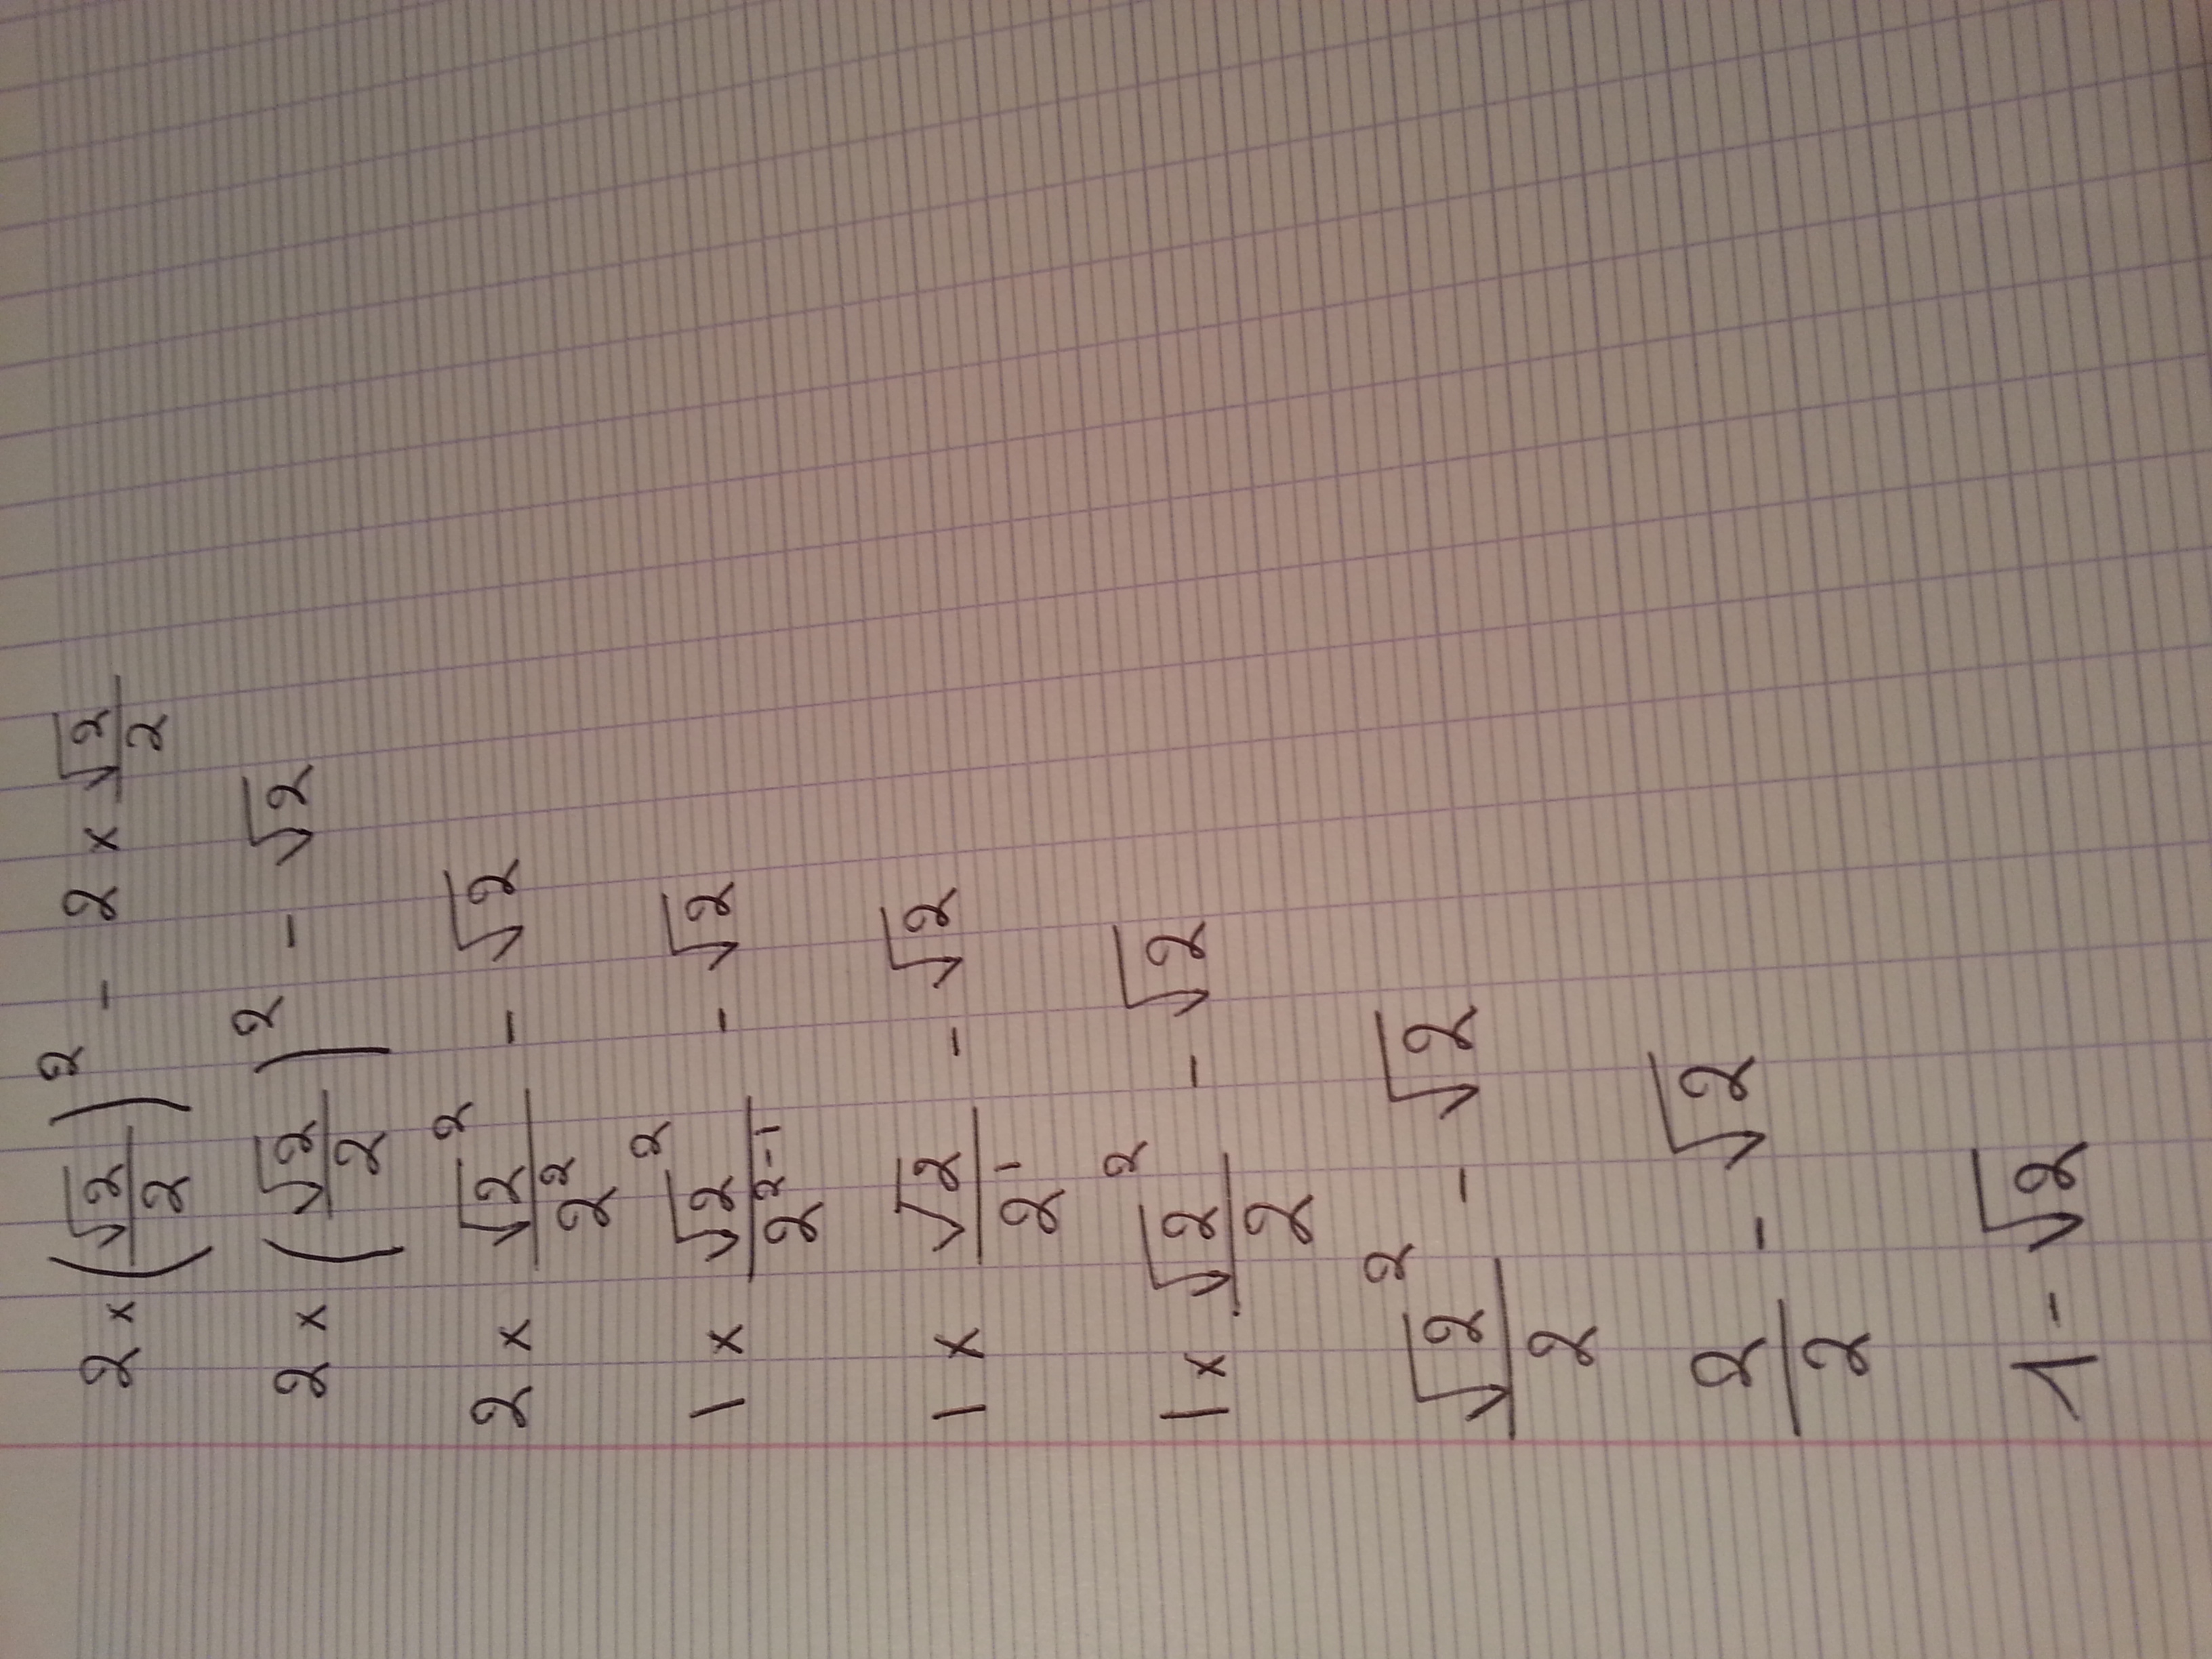 2 × (√2/2)² - 2 × √2/2
2 × (√2/2)² - √2
2 × √2²/2² - √2
1 × √2²/2²⁻¹ - √2
1 × √2/2¹ - √2
1 × √2²/2 - √2
√2²/2 - √2
2/2 - √2
1 - √2